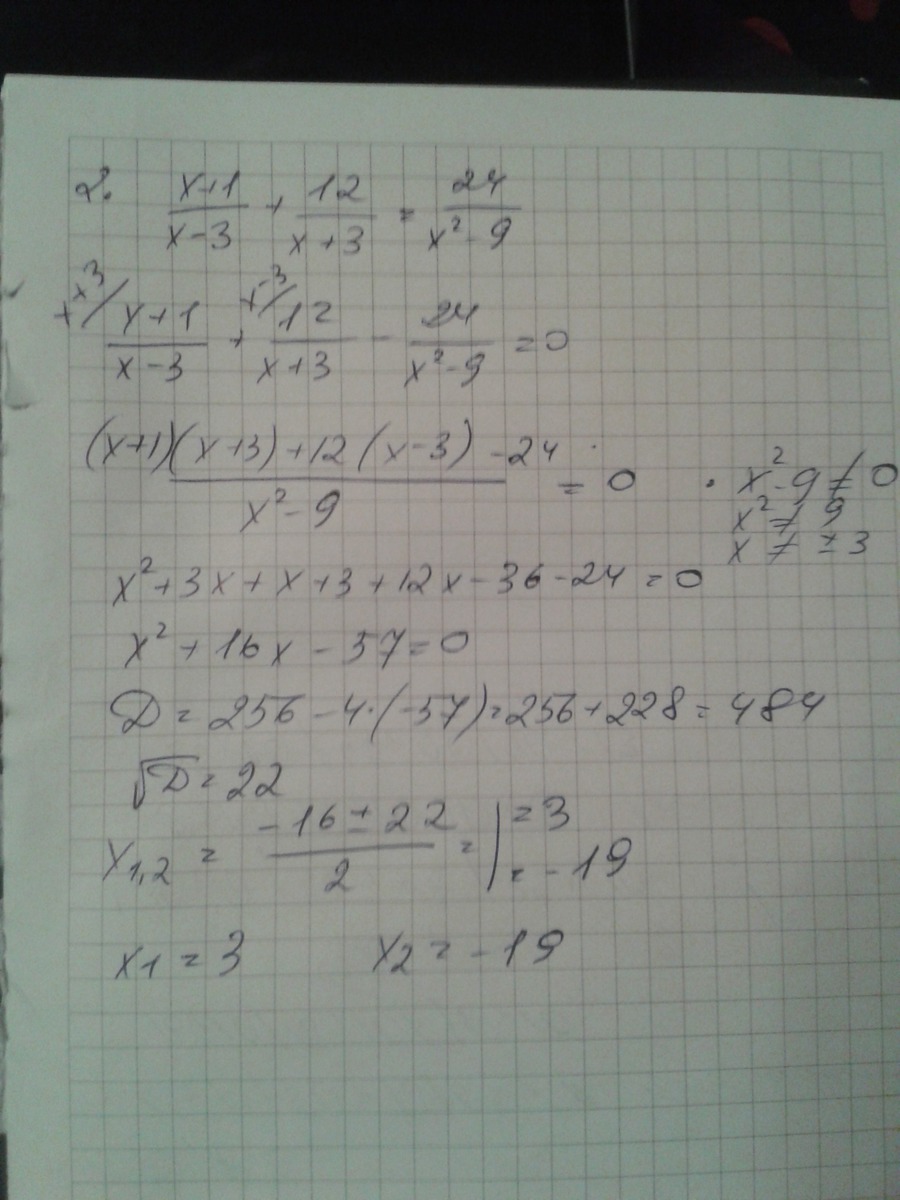 2. (x+1)/(x-3) + 12/(x+3) = 24/(x²-9)
x+3/ (x+1)/(x-3) + x-3/ 12/(x+3) - 24/(x²-9) = 0
((x+1)(x+3)+12(x-3)-24)/(x²-9) = 0 · x²-9≠0
x²≠9
x ≠ ±3
x²+3x+x+3+12x-36-24=0
x²+16x-57=0
D=256-4·(-57)=256+228=484
√D=22
x1,2 = (-16±22)/2 = | =3
= -19
x1=3 x2=-19